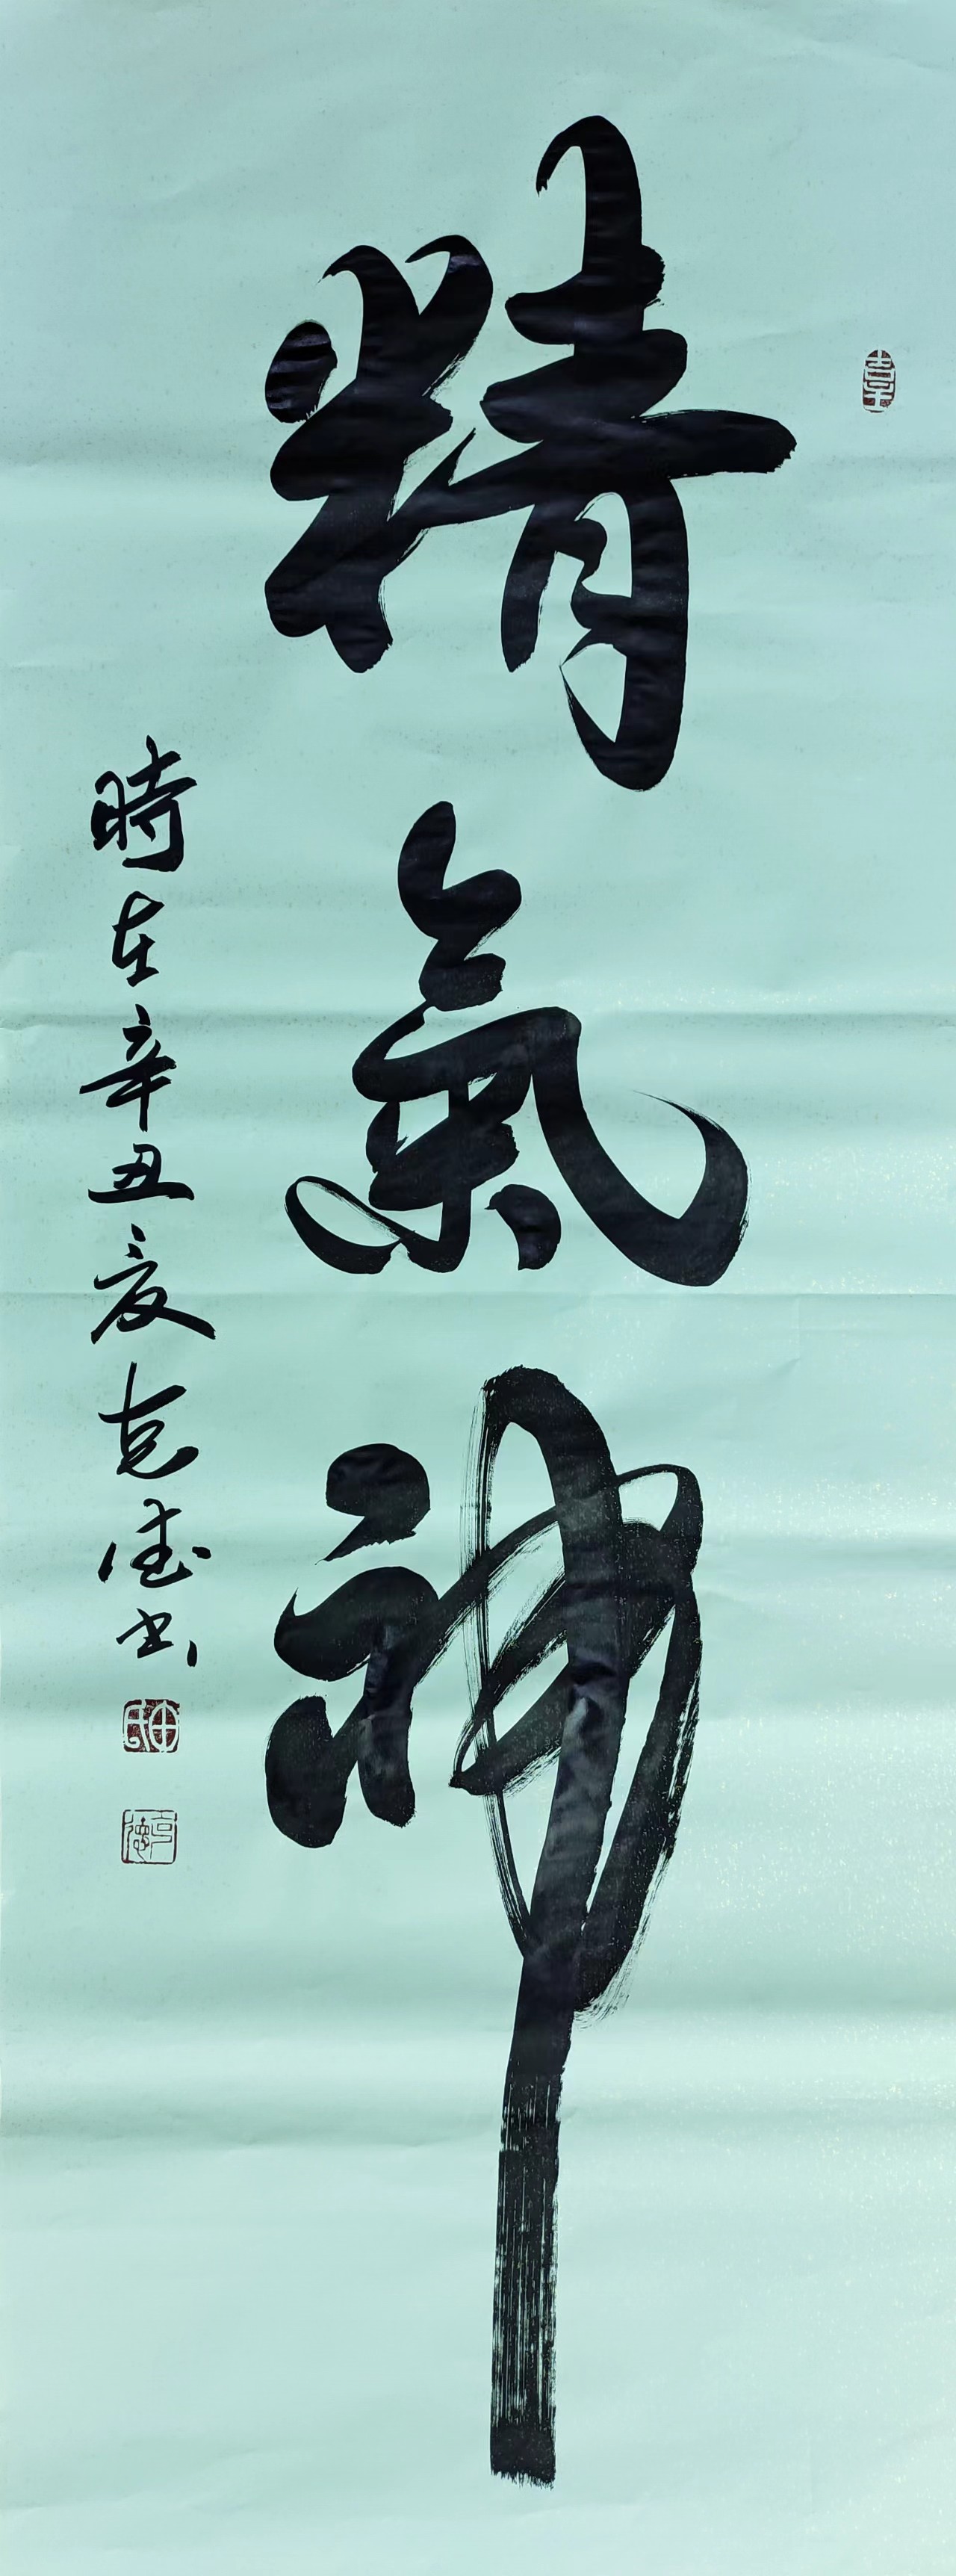 精氣神
時在辛丑夏克德书